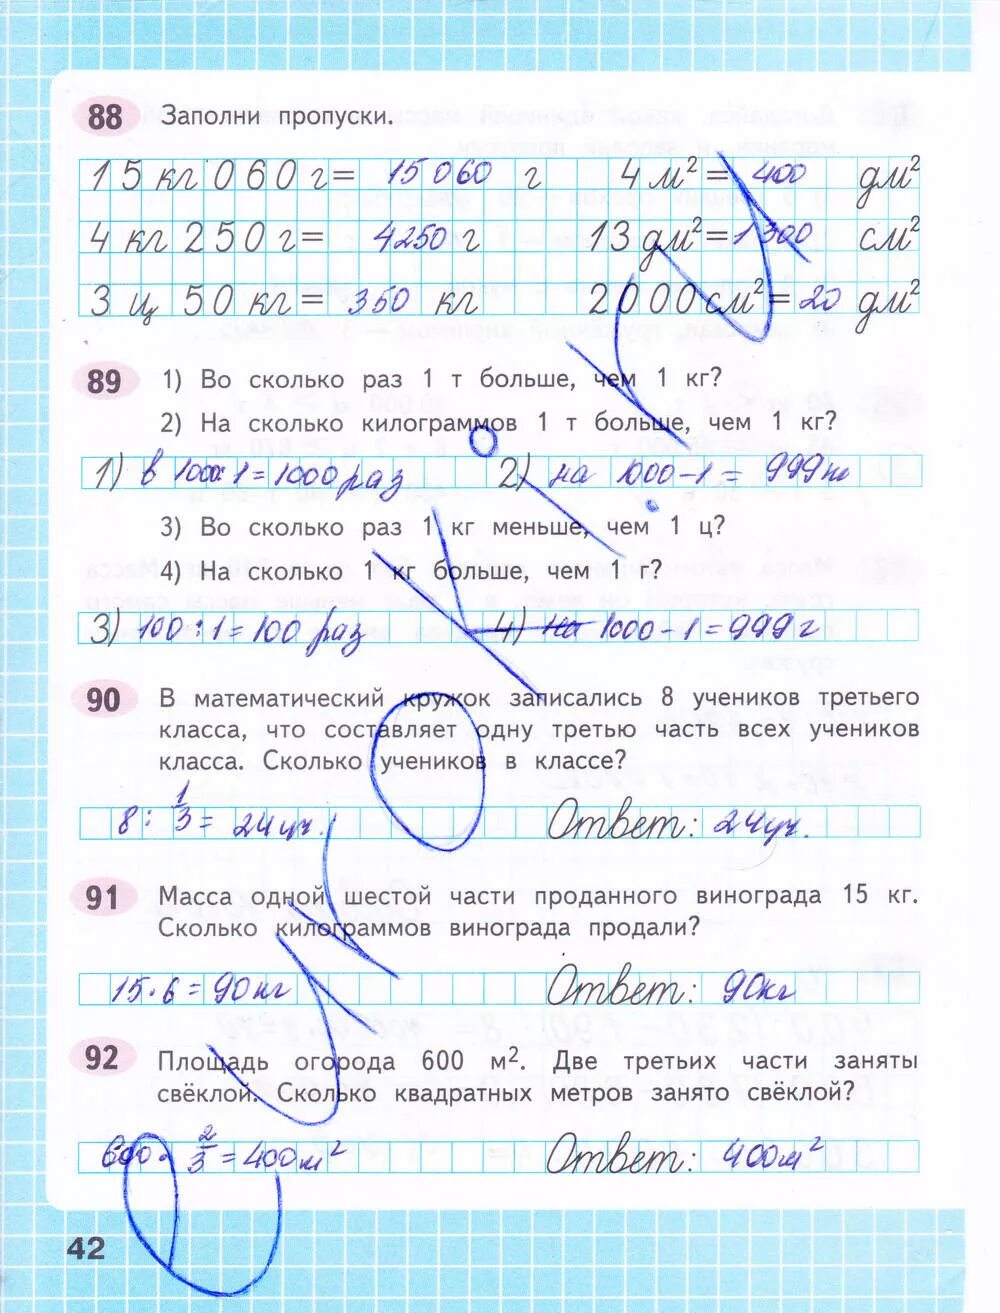 88 Заполни пропуски.
15 кг 060 г = 15 060 г 4 м² = 400 дм²
4 кг 250 г = 4250 г 13 дм² = 1300 см²
3 ц 50 кг = 350 кг 2000 см² = 20 дм²
89 1) Во сколько раз 1 т больше, чем 1 кг?
2) На сколько килограммов 1 т больше, чем 1 кг?
1) в 1000:1=1000 раз 2) на 1000-1= 999
3) Во сколько раз 1 кг меньше, чем 1 ц?
4) На сколько 1 кг больше, чем 1 г?
3) 100:1=100 раз 4) на 1000-1=999 г
90 В математический кружок записались 8 учеников третьего
класса, что составляет одну третью часть всех учеников
класса. Сколько учеников в классе?
8 : 1/3 = 24 уч. Ответ: 24 уч.
91 Масса одной шестой части проданного винограда 15 кг.
Сколько килограммов винограда продали?
15·6=90 кг Ответ: 90 кг
92 Площадь огорода 600 м². Две третьих части заняты
свёклой. Сколько квадратных метров занято свёклой?
600· 2/3 = 400 м² Ответ: 400 м²
42